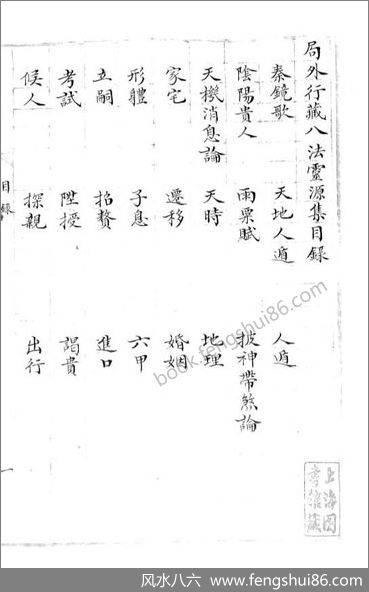 局外行藏八法靈源集目録
秦鏡歌 天地人遁 人遁
陰陽貴人 雨粟賦 披神帶煞論
天機消息論 天時 地理
家宅 遷移 婚姻
形體 子息 六甲
立嗣 招贅 進口
考試 陞授 謁貴
候人 探親 出行
目録
一
上海图
書館藏
book.fengshui86.com
风水八六 www.fengshui86.com